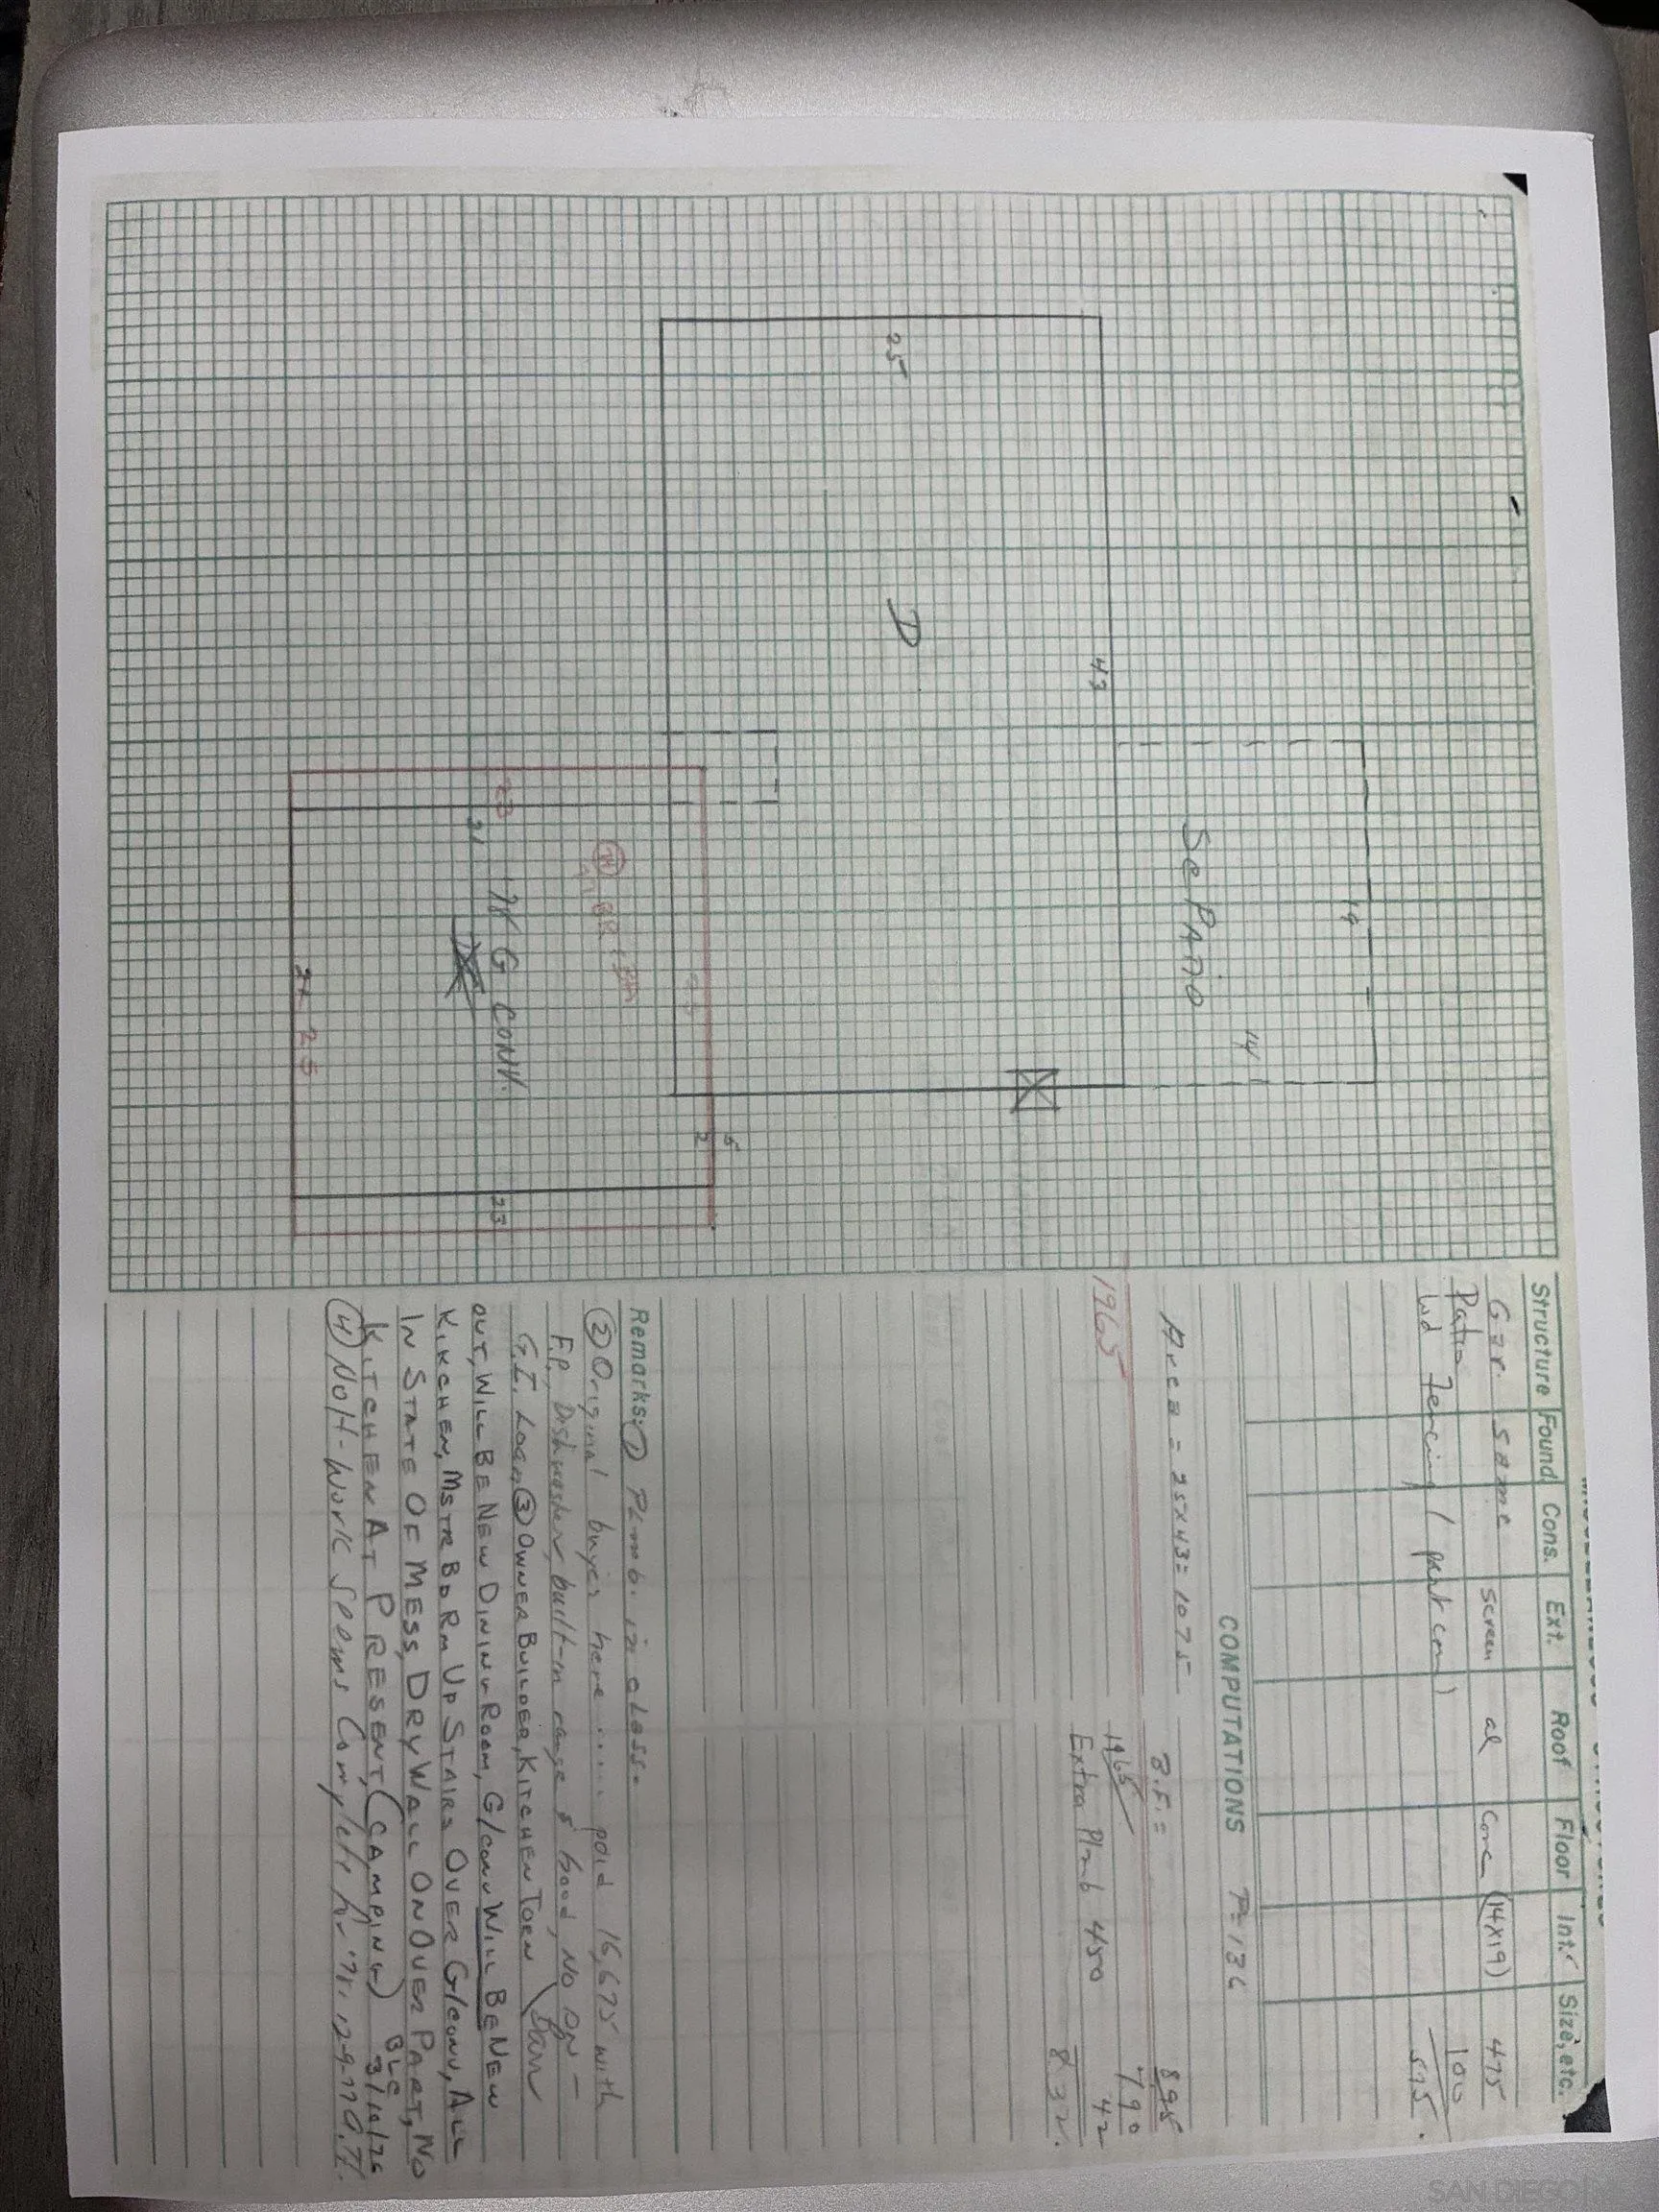 25
D
43
Sc PATIO
19
14
23
21
'78 G CONV.
24 25
2
5
23
Structure Found. Cons. Ext. Roof Floor Int. Size, etc.
Gar. Same
Patio screen al Conc (14x19) 475
Wd Fencing (part cm) 100
575.
COMPUTATIONS P=136
Area = 25x43= 1075 B.F.= 895
1965 1965 790
Extra Plmb 450 42
832.
Remarks: ① Plmb. in class.
② Original buyer here ..... paid 16,675 with
F.P., Dishwasher, built-in range & hood, No DN -
G.I. Loan ③ OWNER BUILDER, KITCHEN TORN
OUT, WILL BE NEW DINING ROOM, G/CONV WILL BE NEW
KIKCHEN, MSTR BDRM UP STAIRS OVER G/CONV, ALL
IN STATE OF MESS, DRY WALL ON OVER PART, NO
KITCHEN AT PRESENT, (CAMPING) BLC
④ NOH- Work seems Complete for '78.